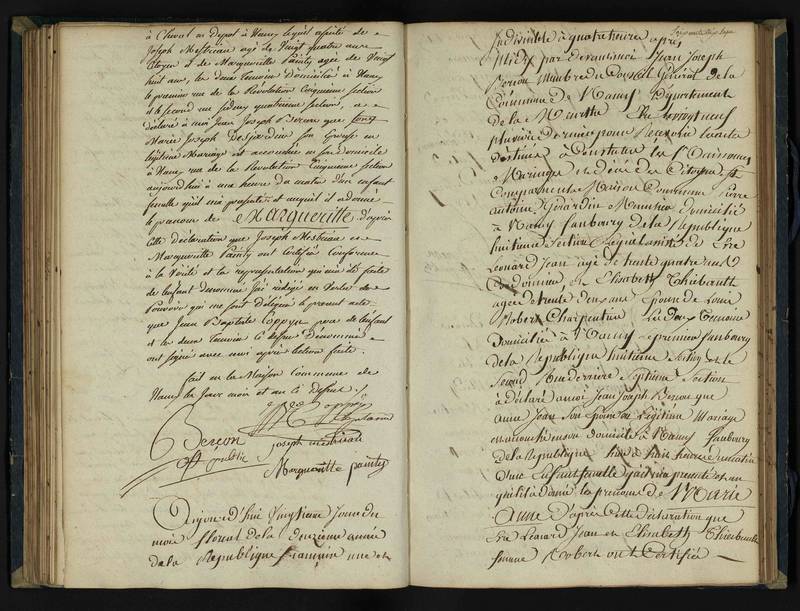 à Cheval en depot à Nancy lequel assisté de
Joseph Mestrieau agé de Vingt quatre ans
Citoyen et de Margueritte Painty agée de Vingt
huit ans, les deux temoins Domiciliés à Nancy
le premier rue de la Révolution Cinquieme Section
et le second rue quatrieme Section, a
déclaré à moi Jean Joseph Berson que
Marie Joseph son Epouse en
légitime Mariage est accouchée en son domicile
à Nancy rue de la Révolution Cinquieme Section
aujourd'hui à une heure du matin d'un enfant
femelle qu'il m'a présenté et auquel il a donné
le prenom de Margueritte d'après
Cette Déclaration que Joseph Mestrieau et
Margueritte Painty ont Certifié Conforme
à la Vérité et la représentation qui m'a été faite
de l'enfant denommé j'ai rédigé en Vertu des
Pouvoirs qui me sont délégués le present acte
que Jean Baptiste Coppyn pere de l'enfant
et les deux temoins ci dessus Dénommés
ont signé avec moi après lecture faite.
fait en la Maison Commune de
Nancy les Jour mois et an ci Dessus.
Joseph mestrieau
Berson
off public
Margueritte painty
Aujourd'hui Vingtieme Jour du
mois floreal de la deuxieme année
de la République française une et
Indivisible à quatre heures après
Midi, par devant moi Jean Joseph
Berson Membre du Conseil Général de la
Commune de Nancy Département
de la Meurthe Elu le vingt neuf
pluviose dernier pour Recevoir les actes
destinés à Constater les Naissances
Mariages et décès des Citoyens, est
Comparu en la Maison Commune pierre
antoine Girardin domicilié
à Nancy fauxbourg de la République
huitieme Section lequel assisté de
Léonard Jean agé de trente quatre ans
Cordonnier et Elisabeth Thiebault
agée de trente deux ans Epouse de Louis
Robert Charpentier Les deux temoins
domiciliés à Nancy le premier fauxbourg
de la République huitieme Section et le
Second Rue derriere Septieme Section
à déclaré à moi Jean Joseph Berson que
anne Jean Son Epouse en Légitime Mariage
est accouchée en son domicile à Nancy fauxbourg
de la République hier à trois heures du matin
d'une Enfant femelle qu'il m'a présenté et au
quel il a donné les prenoms de Marie
Anne D'après Cette déclaration que
Léonard Jean et Elisabeth Thiebault
femme Robert ont Certifié